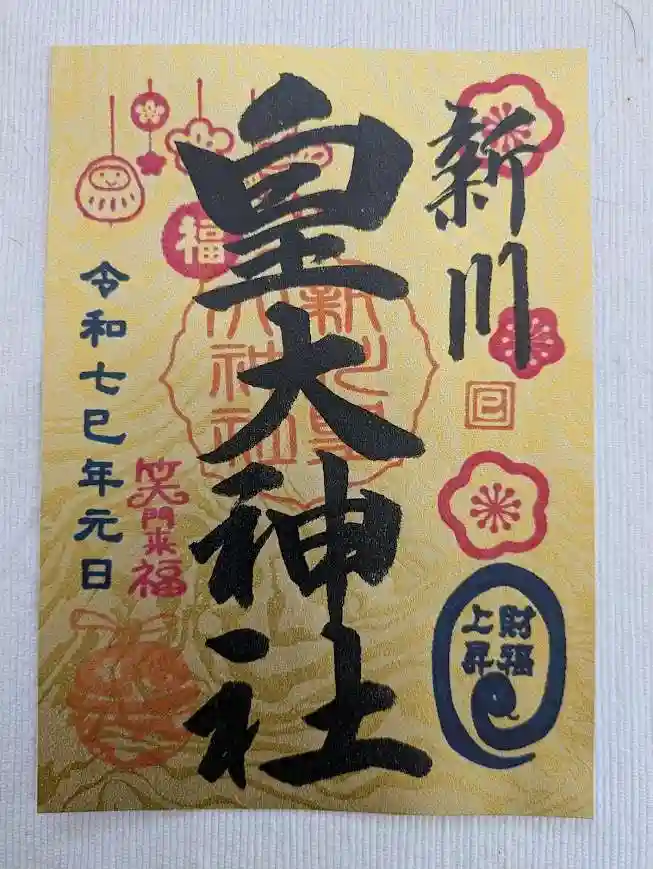 新川
皇大神社
福
新川皇
大神社
巳
財福
上昇
笑門来福
令和七巳年元日